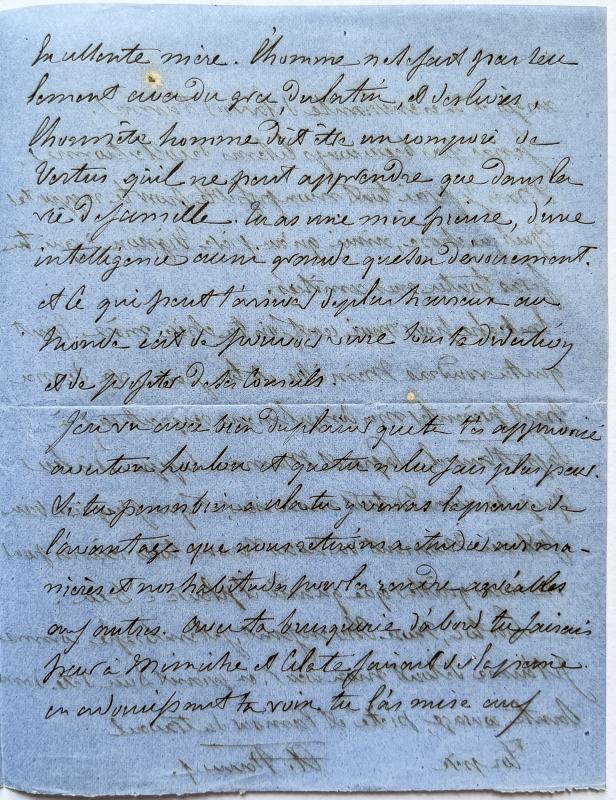 Excellente mère. L'homme ne se fait pas seu
lement avec du grec, du latin, et des livres,
l'honnête homme doit être un composé de
Vertus qu'il ne peut apprendre que dans la
vie de famille. Tu as une mère pieuse, d'une
intelligence aussi grande que son dévouement.
et ce qui peut t'arriver de plus heureux au
Monde c'est de pouvoir vivre sous sa direction
et de profiter de ses Conseils.
J'ai vu avec bien du plaisir que tu t'es apprivoisé
avec ton loulou et que tu ne lui fais plus peur.
Si tu penses bien à cela tu y verras la preuve de
l'avantage que nous retirons à étudier nos ma-
nières et nos habitudes pour les rendre agréables
aux autres. avec ta brusquerie d'abord tu faisais
peur à Mimiche et cela te faisait de la peine.
en adoucissant ta voix tu l'as mise aux